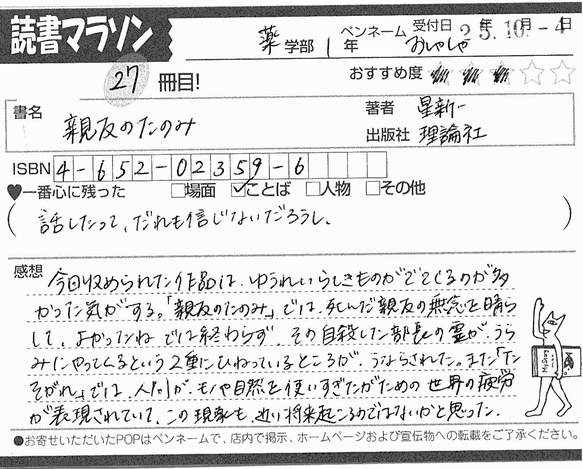 読書マラソン
薬 学部 1 年
ペンネーム おしゃしゃ
受付日 25年10月-4日
27 冊目!
おすすめ度 ★★★☆☆
書名 親友のたのみ
著者 星新一
出版社 理論社
ISBN 4-652-02359-6
♥一番心に残った □場面 ☑ことば □人物 □その他
(話したって、だれも信じないだろうし。)
感想 今回収められた作品は、ゆうれいらしきものがでてくるのが多
かった気がする。「親友のたのみ」では、死んだ親友の無念を晴ら
して、よかったね では終わらず、その自殺した部長の霊が、うら
みにやってくるという2重にひねっているところが、うならされた。また「た
そがれ」では、人間が、モノや自然を使いすぎたがための世界の疲労
が表現されていて、この現象も、近い将来起こるのではないかと思った。
●お寄せいただいたPOPはペンネームで、店内で掲示、ホームページおよび宣伝物への転載をご了承ください。